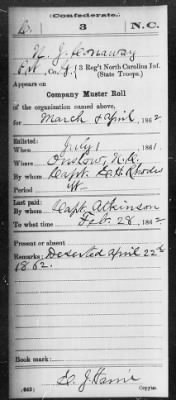 Confederate.
3 N.C.
Pvt, Co. G, 3 Reg't North Carolina Inf.
(State Troops.)
Appears on
Company Muster Roll
of the organization named above,
for March & April, 1862
Enlisted:
When July 1 1861.
Where Onslow, N.C.
By whom Capt. E H Rhodes
Period
Last paid:
By whom Capt. Atkinson
To what time Feb. 28, 1862
Present or absent
Remarks: Deserted April 22d
1862.
Book mark:
E. J. Harris
(642) Copyist.